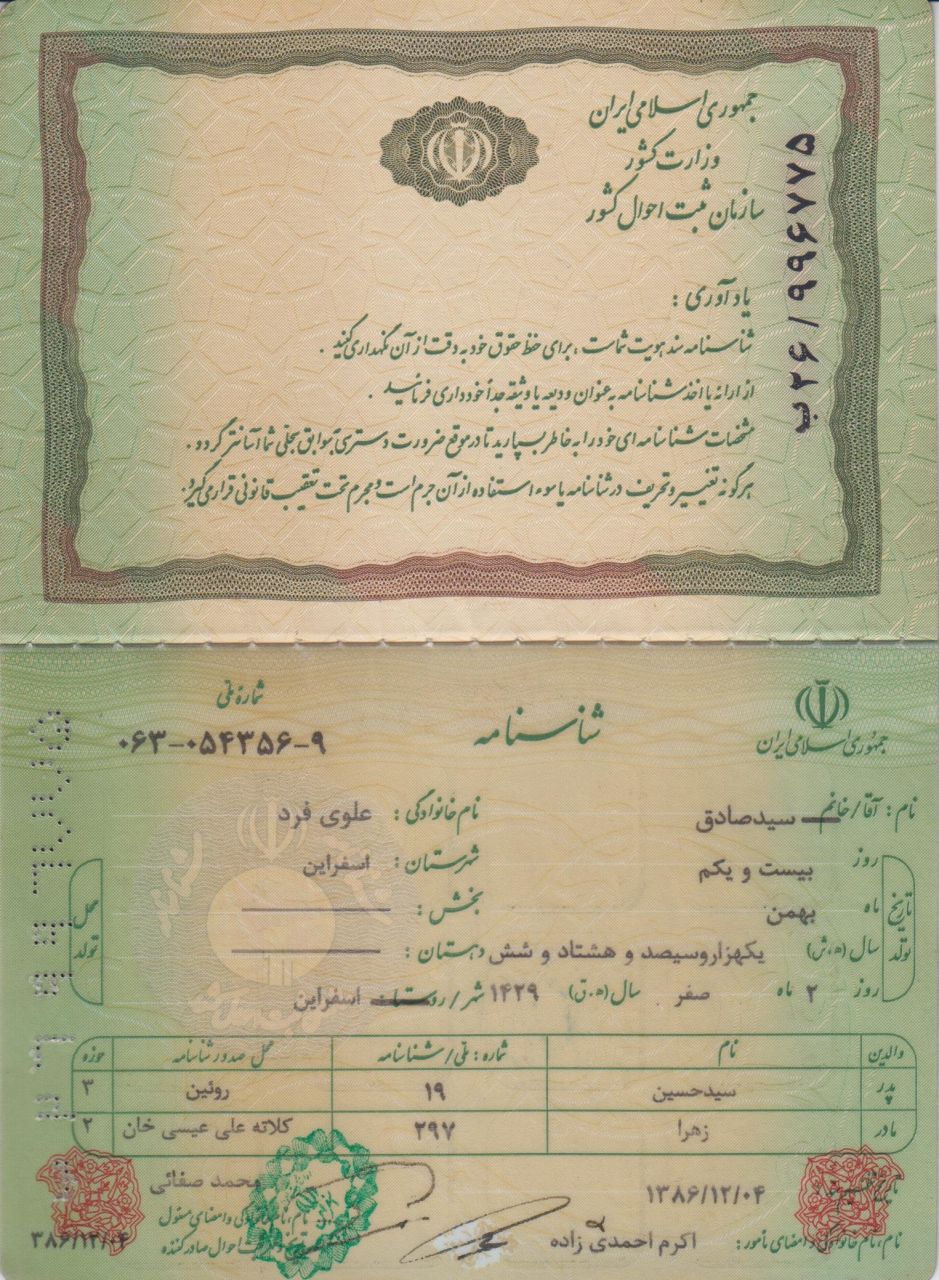 جمهوری اسلامی ایران
وزارت کشور
سازمان ثبت احوال کشور
ب۲۶/۹۹۶۷۷۵
یادآوری :
شناسنامه سند هویت شماست ، برای حفظ حقوق خود به دقت از آن نگهداری کنید .
از ارائه یا اخذ شناسنامه به عنوان ودیعه یا وثیقه جداً خودداری فرمائید .
مشخصات شناسنامه ای خود را به خاطر بسپارید تا در موقع ضرورت دسترسی به سوابق سجلی شما آسانتر گردد .
هرگونه تغییر و تحریف در شناسنامه یا سوء استفاده از آن جرم است و مجرم تحت تعقیب قانونی قرار می‌گیرد.
جمهوری اسلامی ایران
شناسنامه
شماره ملی
۰۶۳-۰۵۴۳۵۶-۹
نام : آقا/خانم سیدصادق نام خانوادگی : علوی فرد
تاریخ تولد
روز بیست و یکم
ماه بهمن
سال (ه.ش) یکهزاروسیصد و هشتاد و شش
روز ۲ ماه صفر سال (ه.ق) ۱۴۲۹
محل تولد
شهرستان : اسفراین
بخش :
دهستان :
شهر/روستا : اسفراین
والدین نام شماره : ملی/شناسنامه محل صدور شناسنامه حوزه
پدر سیدحسین ۱۹ روئین ۳
مادر زهرا ۲۹۷ کلاته علی عیسی خان ۲
۱۳۸۶/۱۲/۰۴
محمد صفائی
نام، نام خانوادگی و امضای مأمور : اکرم احمدی زاده
نام، نام خانوادگی و امضای مسئول
ثبت احوال صادرکننده
۱۳۸۶/۱۲/۰۴